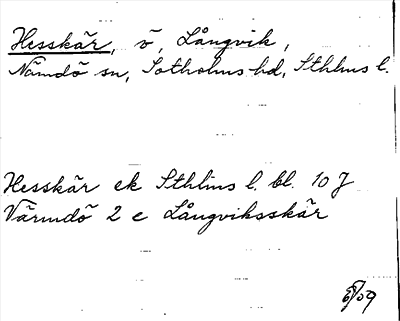 Hesskär, ö, Långvik,
Nämdö sn, Sotholms hd, Sthlms l.
Hesskär ek Sthlms l. bl. 10 J
Värmdö 2 e Långviksskär